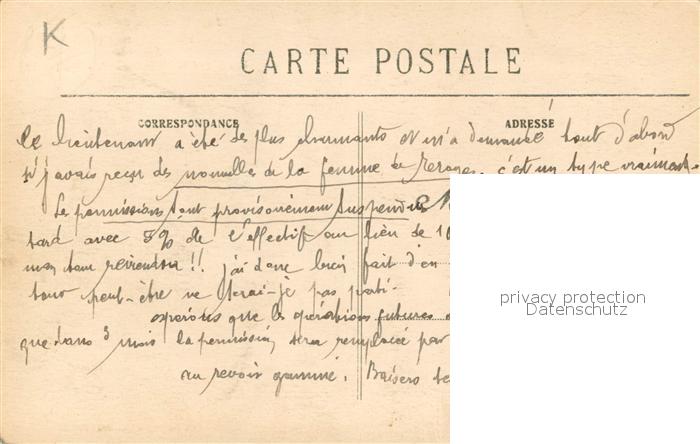 K
CARTE POSTALE
CORRESPONDANCE
ADRESSE
le lieutenant a été des plus charmants et m'a demandé tout d'abord
si j'avais reçu des nouvelles de la femme de c'est un type vraiment
Les permissions sont provisoirement suspendues
tard avec 5% de l'effectif au lieu de 10
mon tour reviendra!! j'ai donc bien fait d'en
tour peut-être ne serai-je pas parti-
espérons que les opérations futures
que dans 3 mois la permission sera remplacée par
au revoir gamine. Baisers
privacy protection
Datenschutz